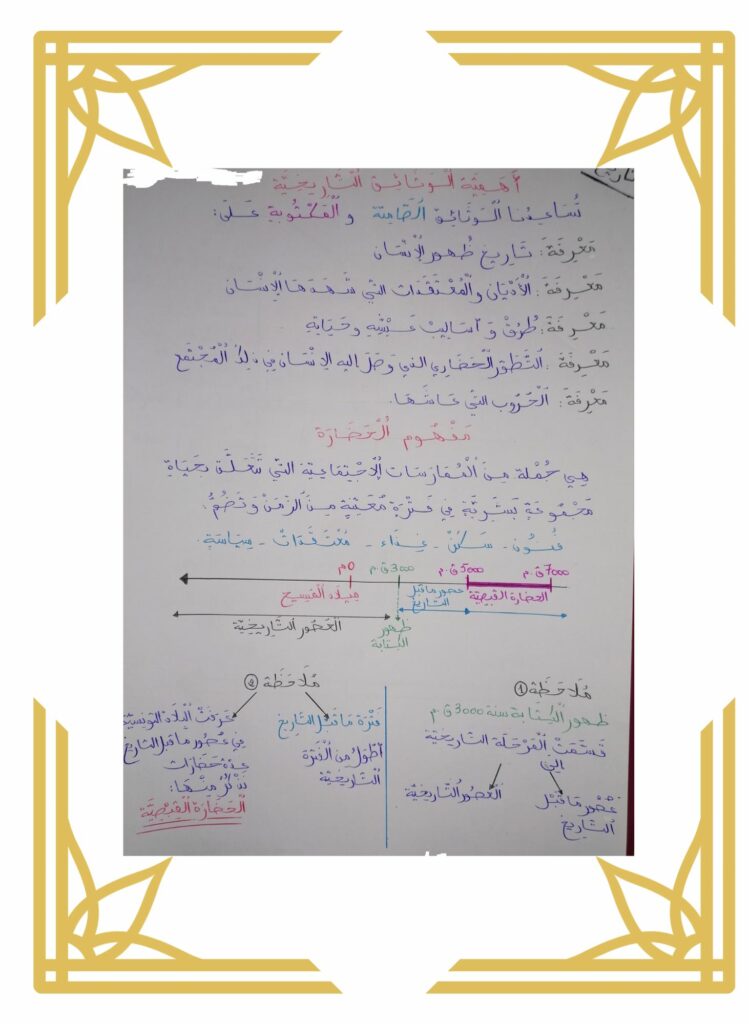 أَهَمِّيَّة الْوَثَائِق التَّارِيخِيَّة
تُسَاعِدُنَا الْوَثَائِق الصَّامِتَة وَ الْمَكْتُوبَةِ عَلَى:
مَعْرِفَةَ: تَارِيخِ ظُهورِ الْإِنْسَان
مَعْرِفَةَ: الْأَدْيَان وَ الْمُعْتَقَدَات التي شَهِدَهَا الْإِنْسَان
مَعْرِفَةَ: طُرُقْ وَ أَسَالِيبْ عَيْشِهِ وحَيَاتِهِ
مَعْرِفَةَ: التَّطَوّر الْحَضَارِي الذي وَصَلَ إليه الإنْسَان فِي ذلِكَ الْمُجْتَمَع
مَعْرِفَةَ: الْحُرُوب التي عَاشَهَا.
مَفْهُوم الْحَضَارَة
هِيَ جُمْلة مِنَ الْمُمَارَسَات الْاجْتِمَاعِيّة التي تَتَعَلَّق بِحَيَاةِ
مَجْمُوعَةٍ بَشَرِيَّةٍ فِي فَتْرَةٍ مُعَيَّنَةٍ مِنَ الزَّمَنْ وَتَضُمُّ:
فُنُون - سَكَنْ - غِذَاء - مُعْتَقَدَاتْ - سِيَاسَة.
7000 ق.م 5000 ق.م 3000 ق.م 0م
الحضارة القبصيّة عصور ما قبل التّاريخ ميلاد المَسِيح
ظهور الكتابة الْعُصُور التَّارِيخِيَّة
مُلَاحَظَة 1
ظهور الْكِتَابة سنة 3000 ق.م
قَسَّمَتْ الْمَرْحَلَة التّاريخيّة
إلى
عُصُور مَا قَبْل التَّارِيخ
الْعُصُور التَّاريخيَّة
مُلَاحَظَة 2
فَتْرَة مَا قَبْل التَّارِيخ
أَطْوَلُ مِن الْفَتْرَة
التَّارِيخِيَّة
عَرَفَتْ الْبِلَاد التونسيّة
فِي عُصُور ما قبل التّاريخ
عِدّة حَضَارَات
نَذْكُرُ مِنْهَا:
الْحَضَارَة الْقَبْصِيَّة